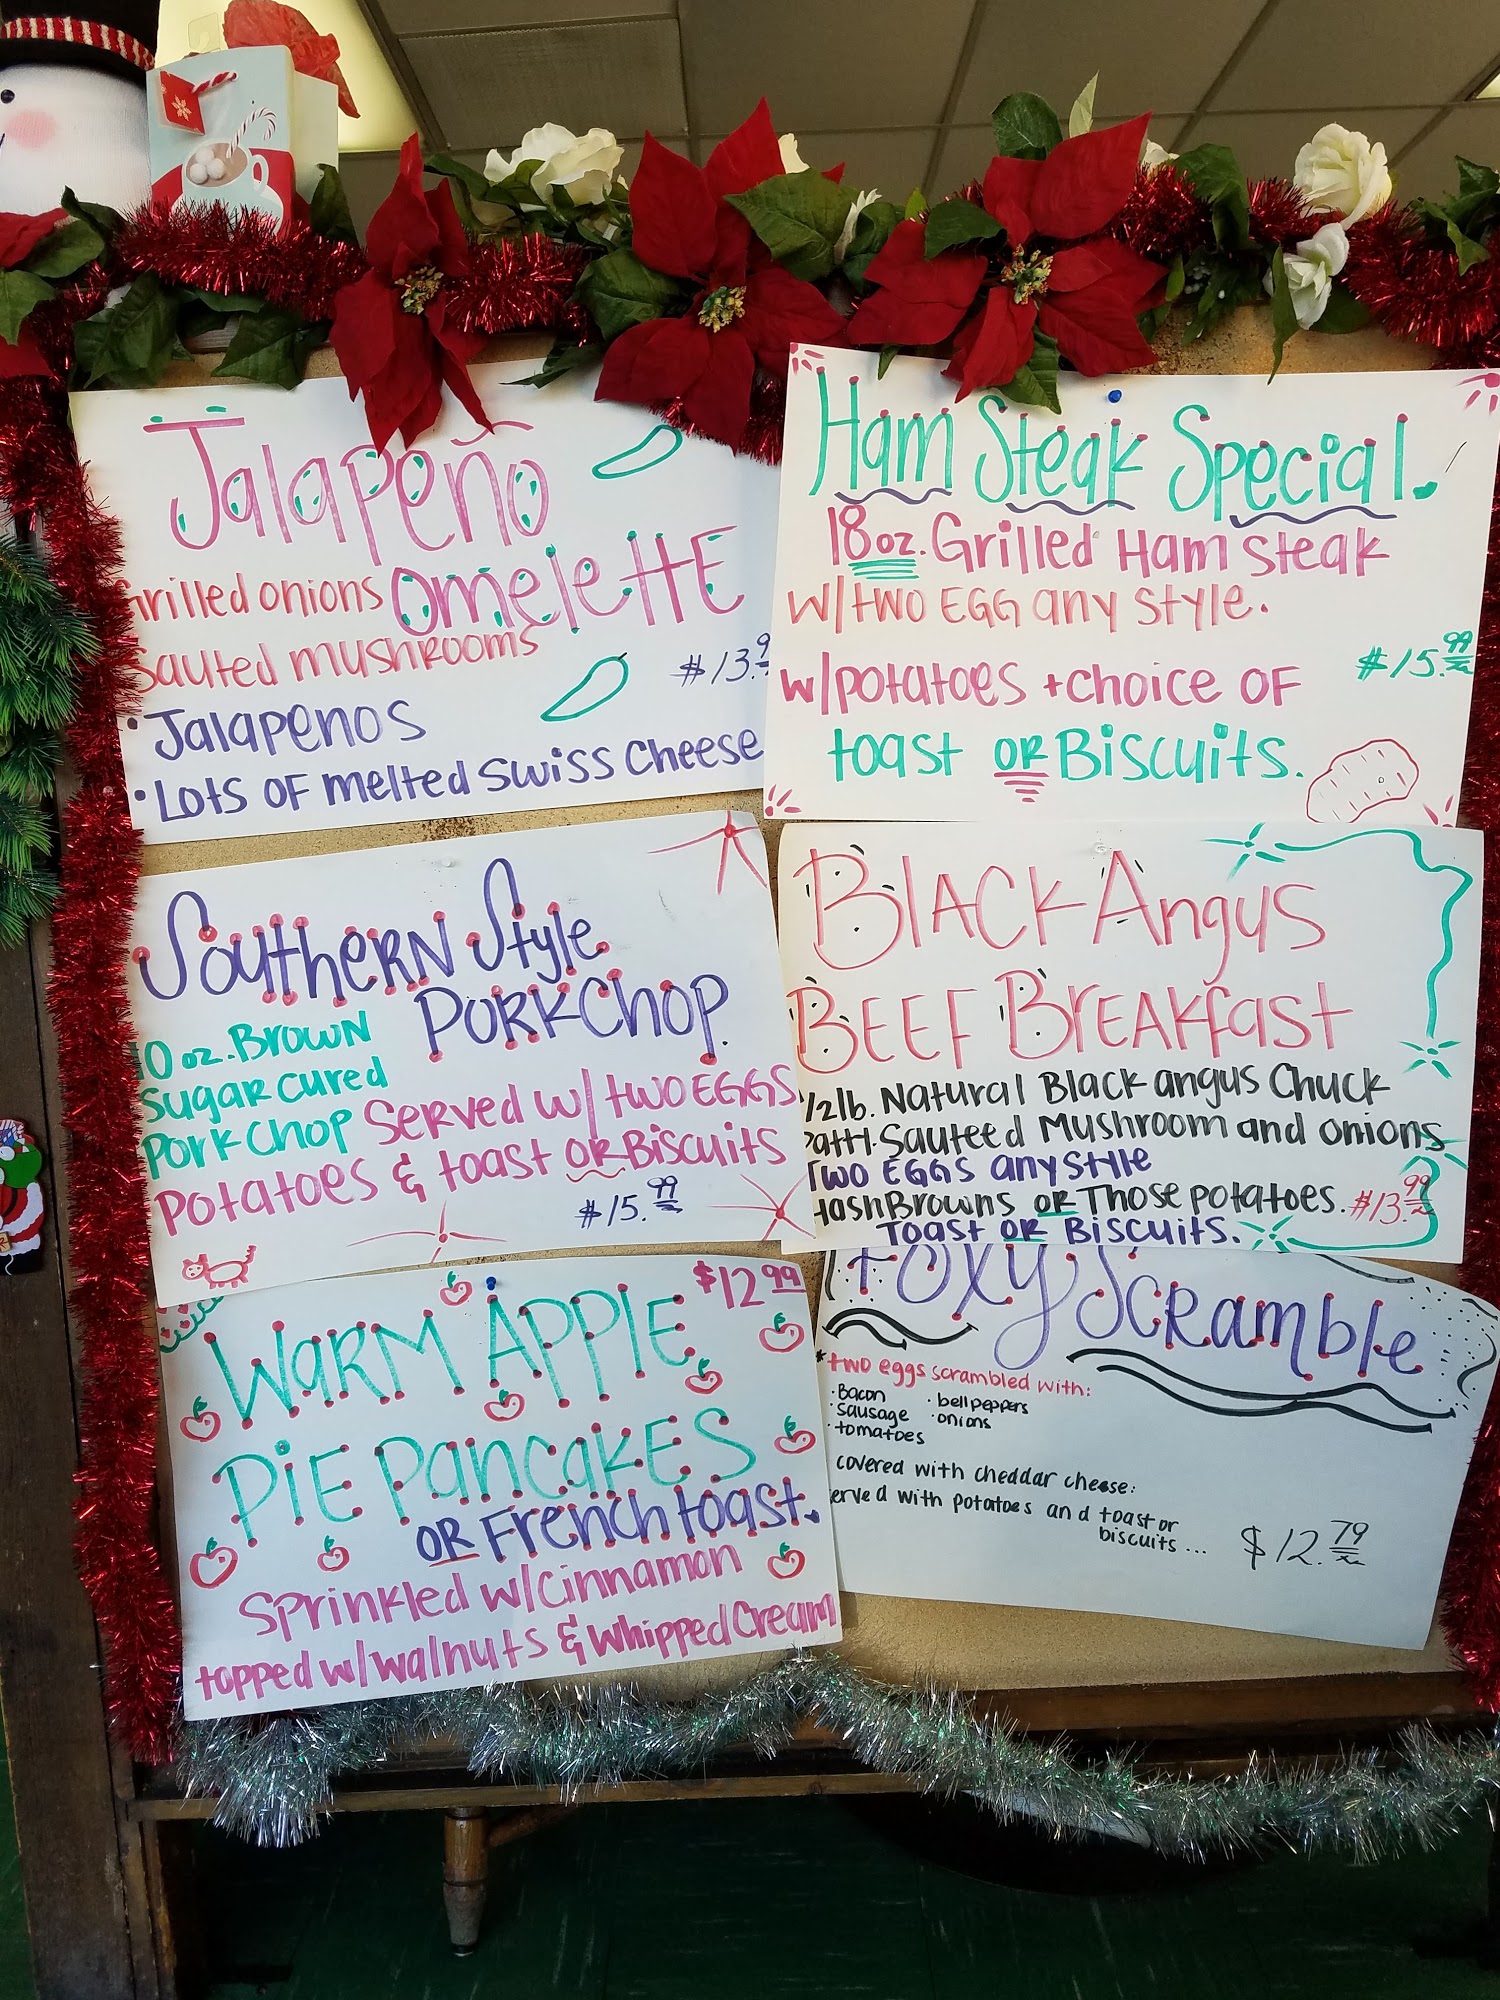 Jalapeño
Omelette
Grilled onions
Sauted mushrooms
$13.9
• Jalapenos
• Lots of melted swiss cheese
Ham Steak Special.
18 oz. Grilled Ham Steak
w/ two egg any style.
$15.99
w/potatoes + choice of
toast or Biscuits.
Southern Style
Pork Chop.
10 oz. Brown
Sugar cured
Pork Chop
Served w/ two EGGS
Potatoes & toast or Biscuits
$15.99
Black Angus
Beef Breakfast
1/2 lb. Natural Black angus Chuck
Patti. Sauteed Mushroom and onions
Two EGGS any style
HashBrowns or Those potatoes. $13.99
Toast or Biscuits.
$12.99
Warm Apple
Pie Pancakes
or French toast.
Sprinkled w/cinnamon
topped w/walnuts & whipped Cream
Foxy Scramble
*two eggs scrambled with:
· Bacon · bell peppers
· sausage · onions
· tomatoes
covered with cheddar cheese:
erved with potatoes and toast or
biscuits...
$12.79